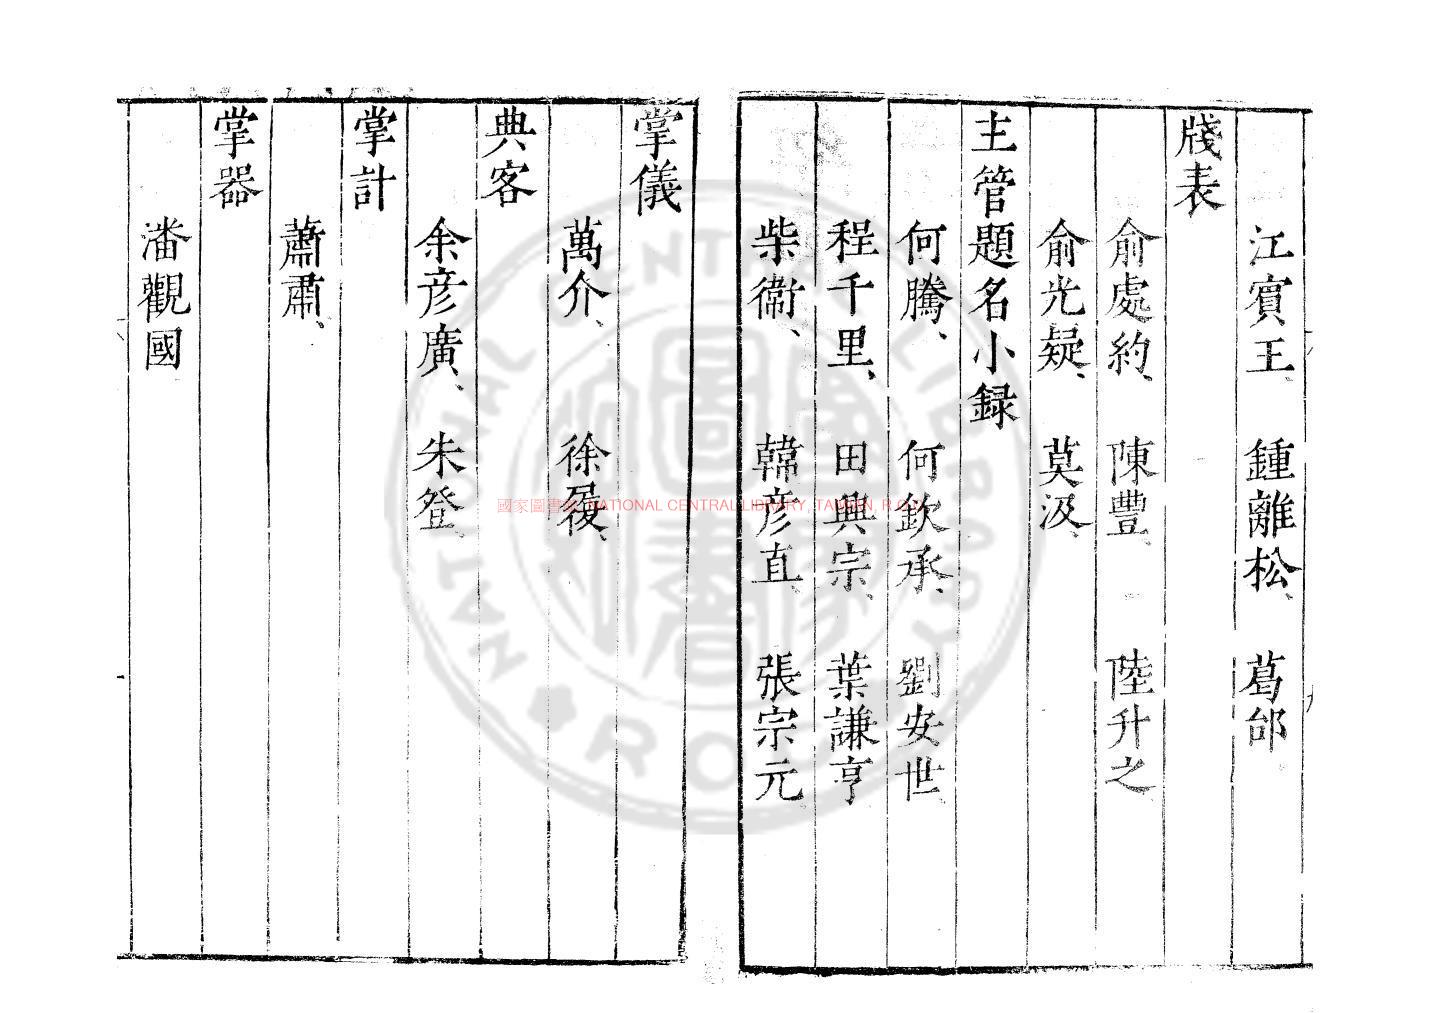 江賓王、 鍾離松、 葛邰
牋表
俞處約、 陳豐、 陸升之
俞光疑、 莫汲、
主管題名小録
何騰、 何欽承、 劉安世
程千里、 田興宗、 葉謙亨
柴衞、 韓彦直、 張宗元
掌儀
萬介、 徐履、
典客
余彦廣、 朱登
掌計
蕭肅、
掌器
潘觀國
國家圖書館 NATIONAL CENTRAL LIBRARY, TAIWAN, R.O.C
NATIONAL CENTRAL LIBRARY
R O C